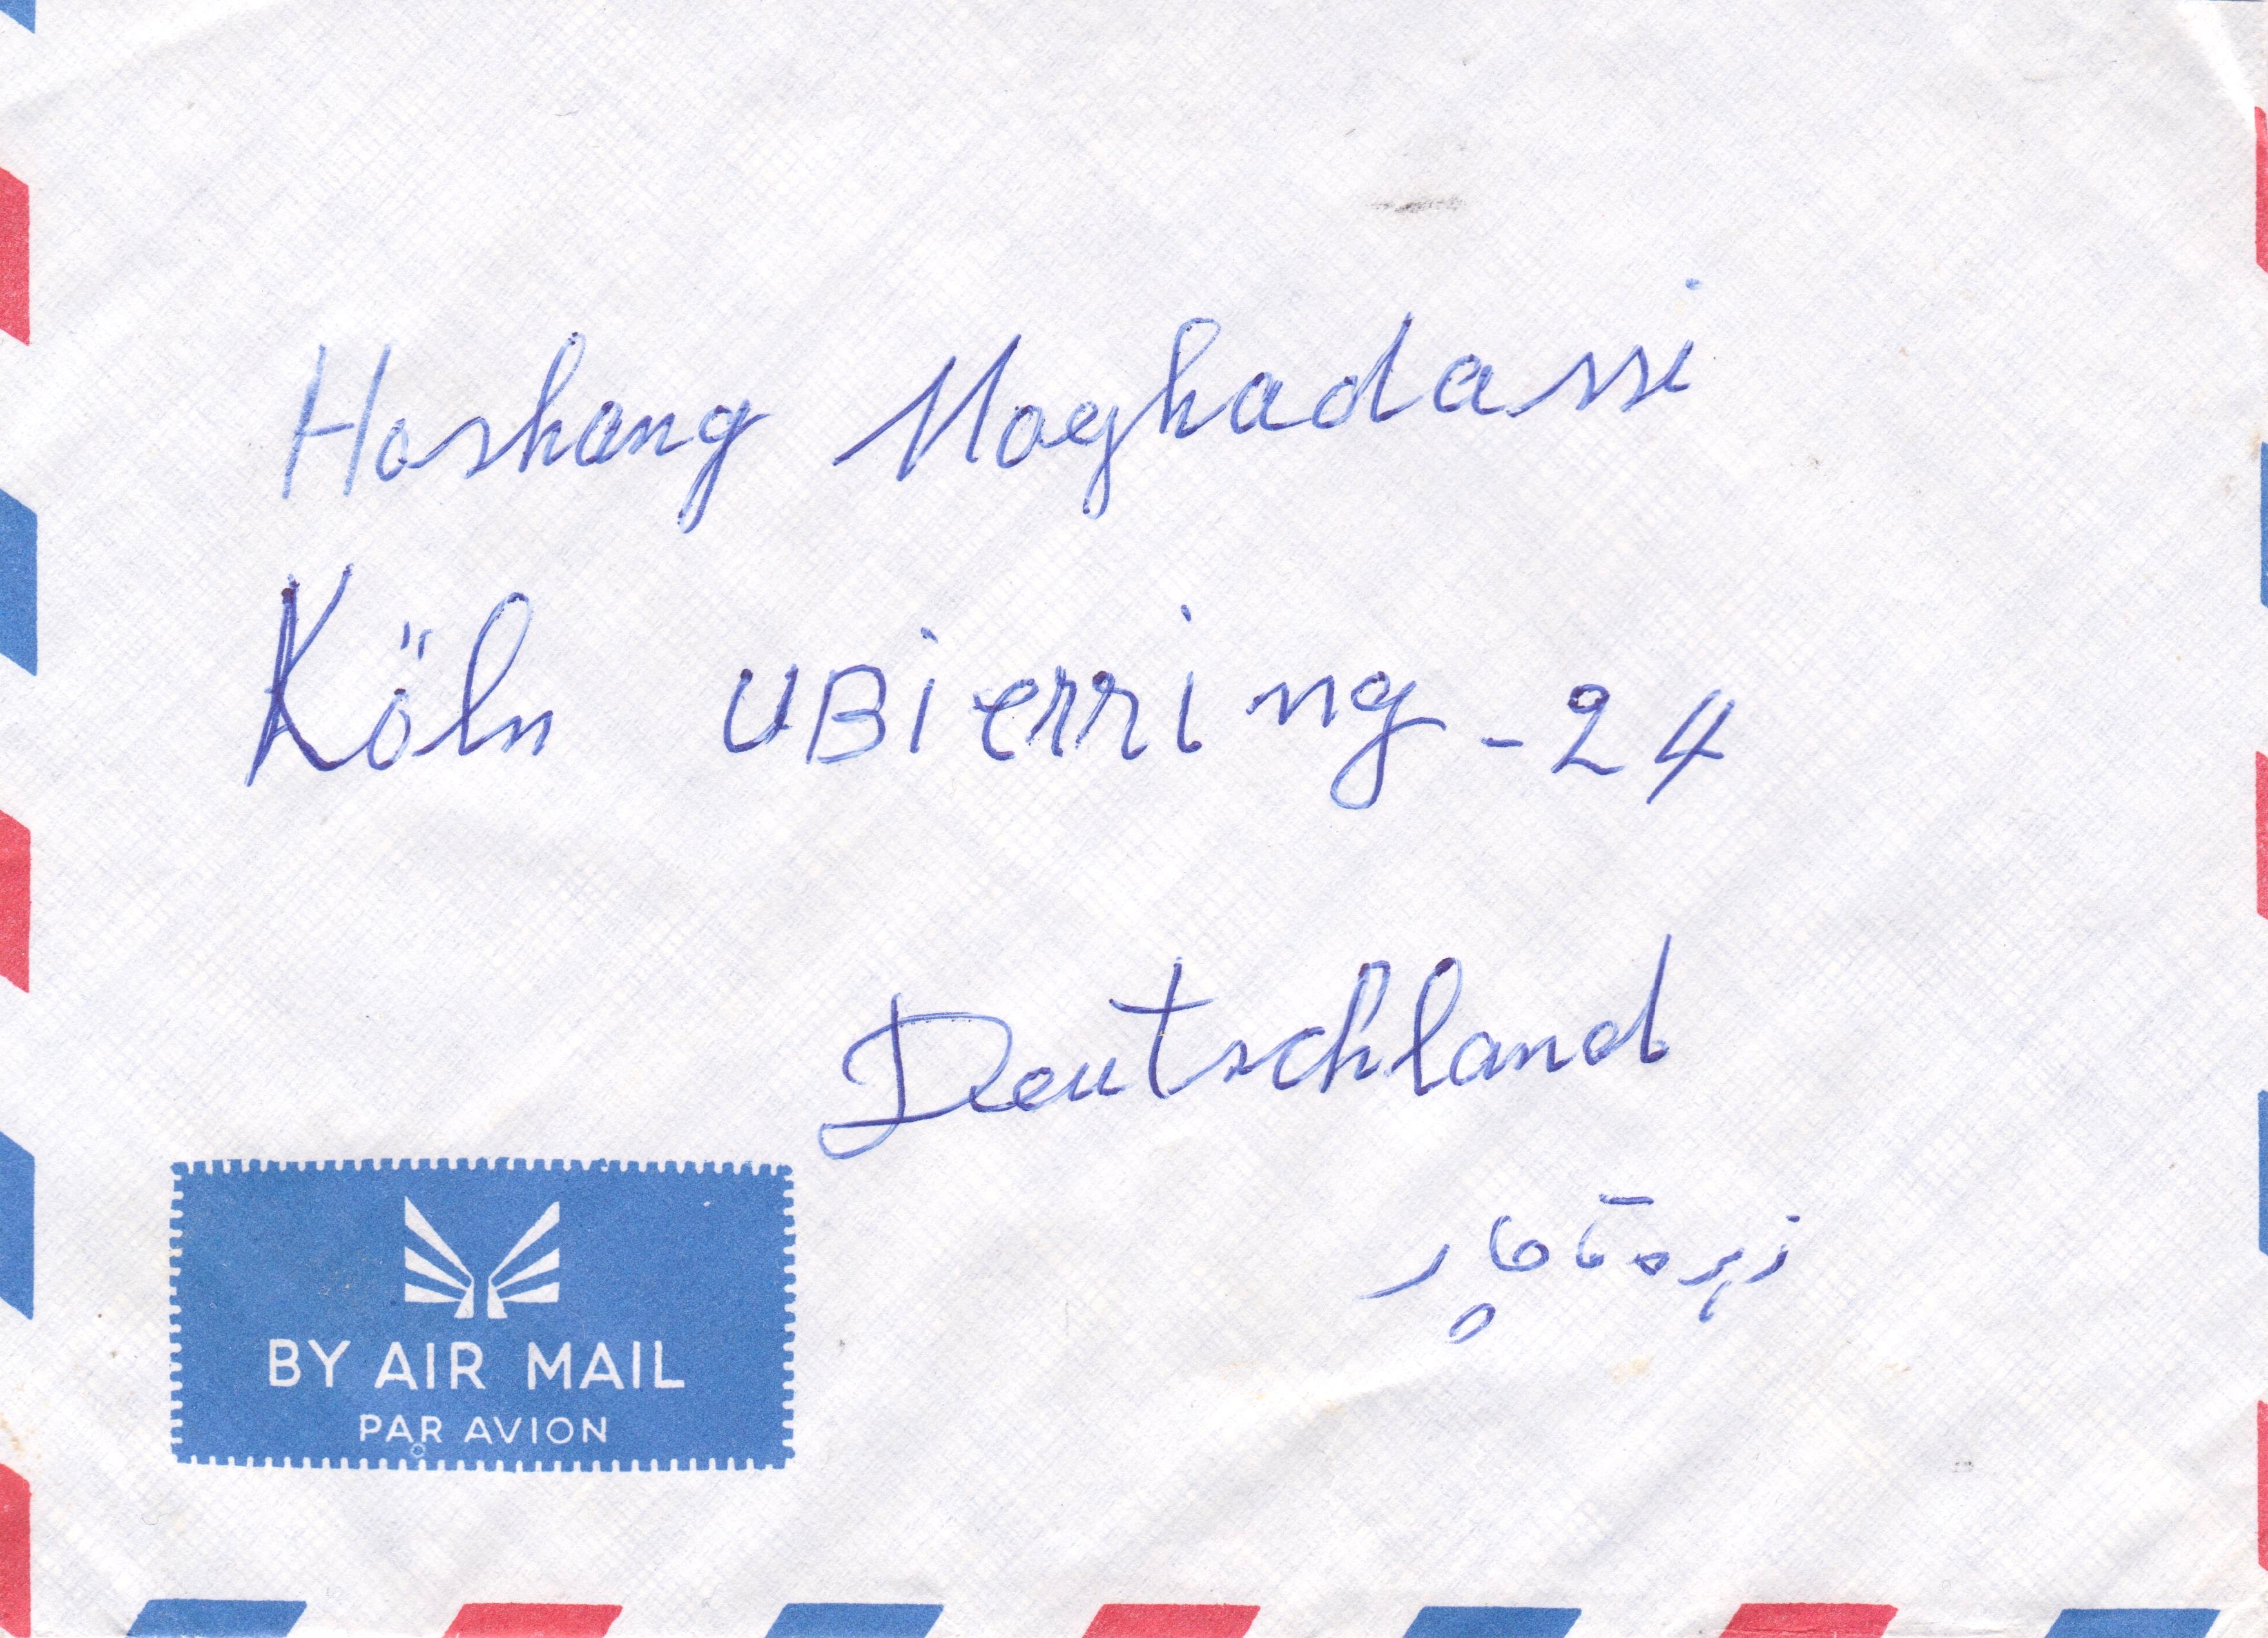 Hoshang Moghadassi
Köln UBierring - 24
Deutschland
زهره قاجار
BY AIR MAIL
PAR AVION